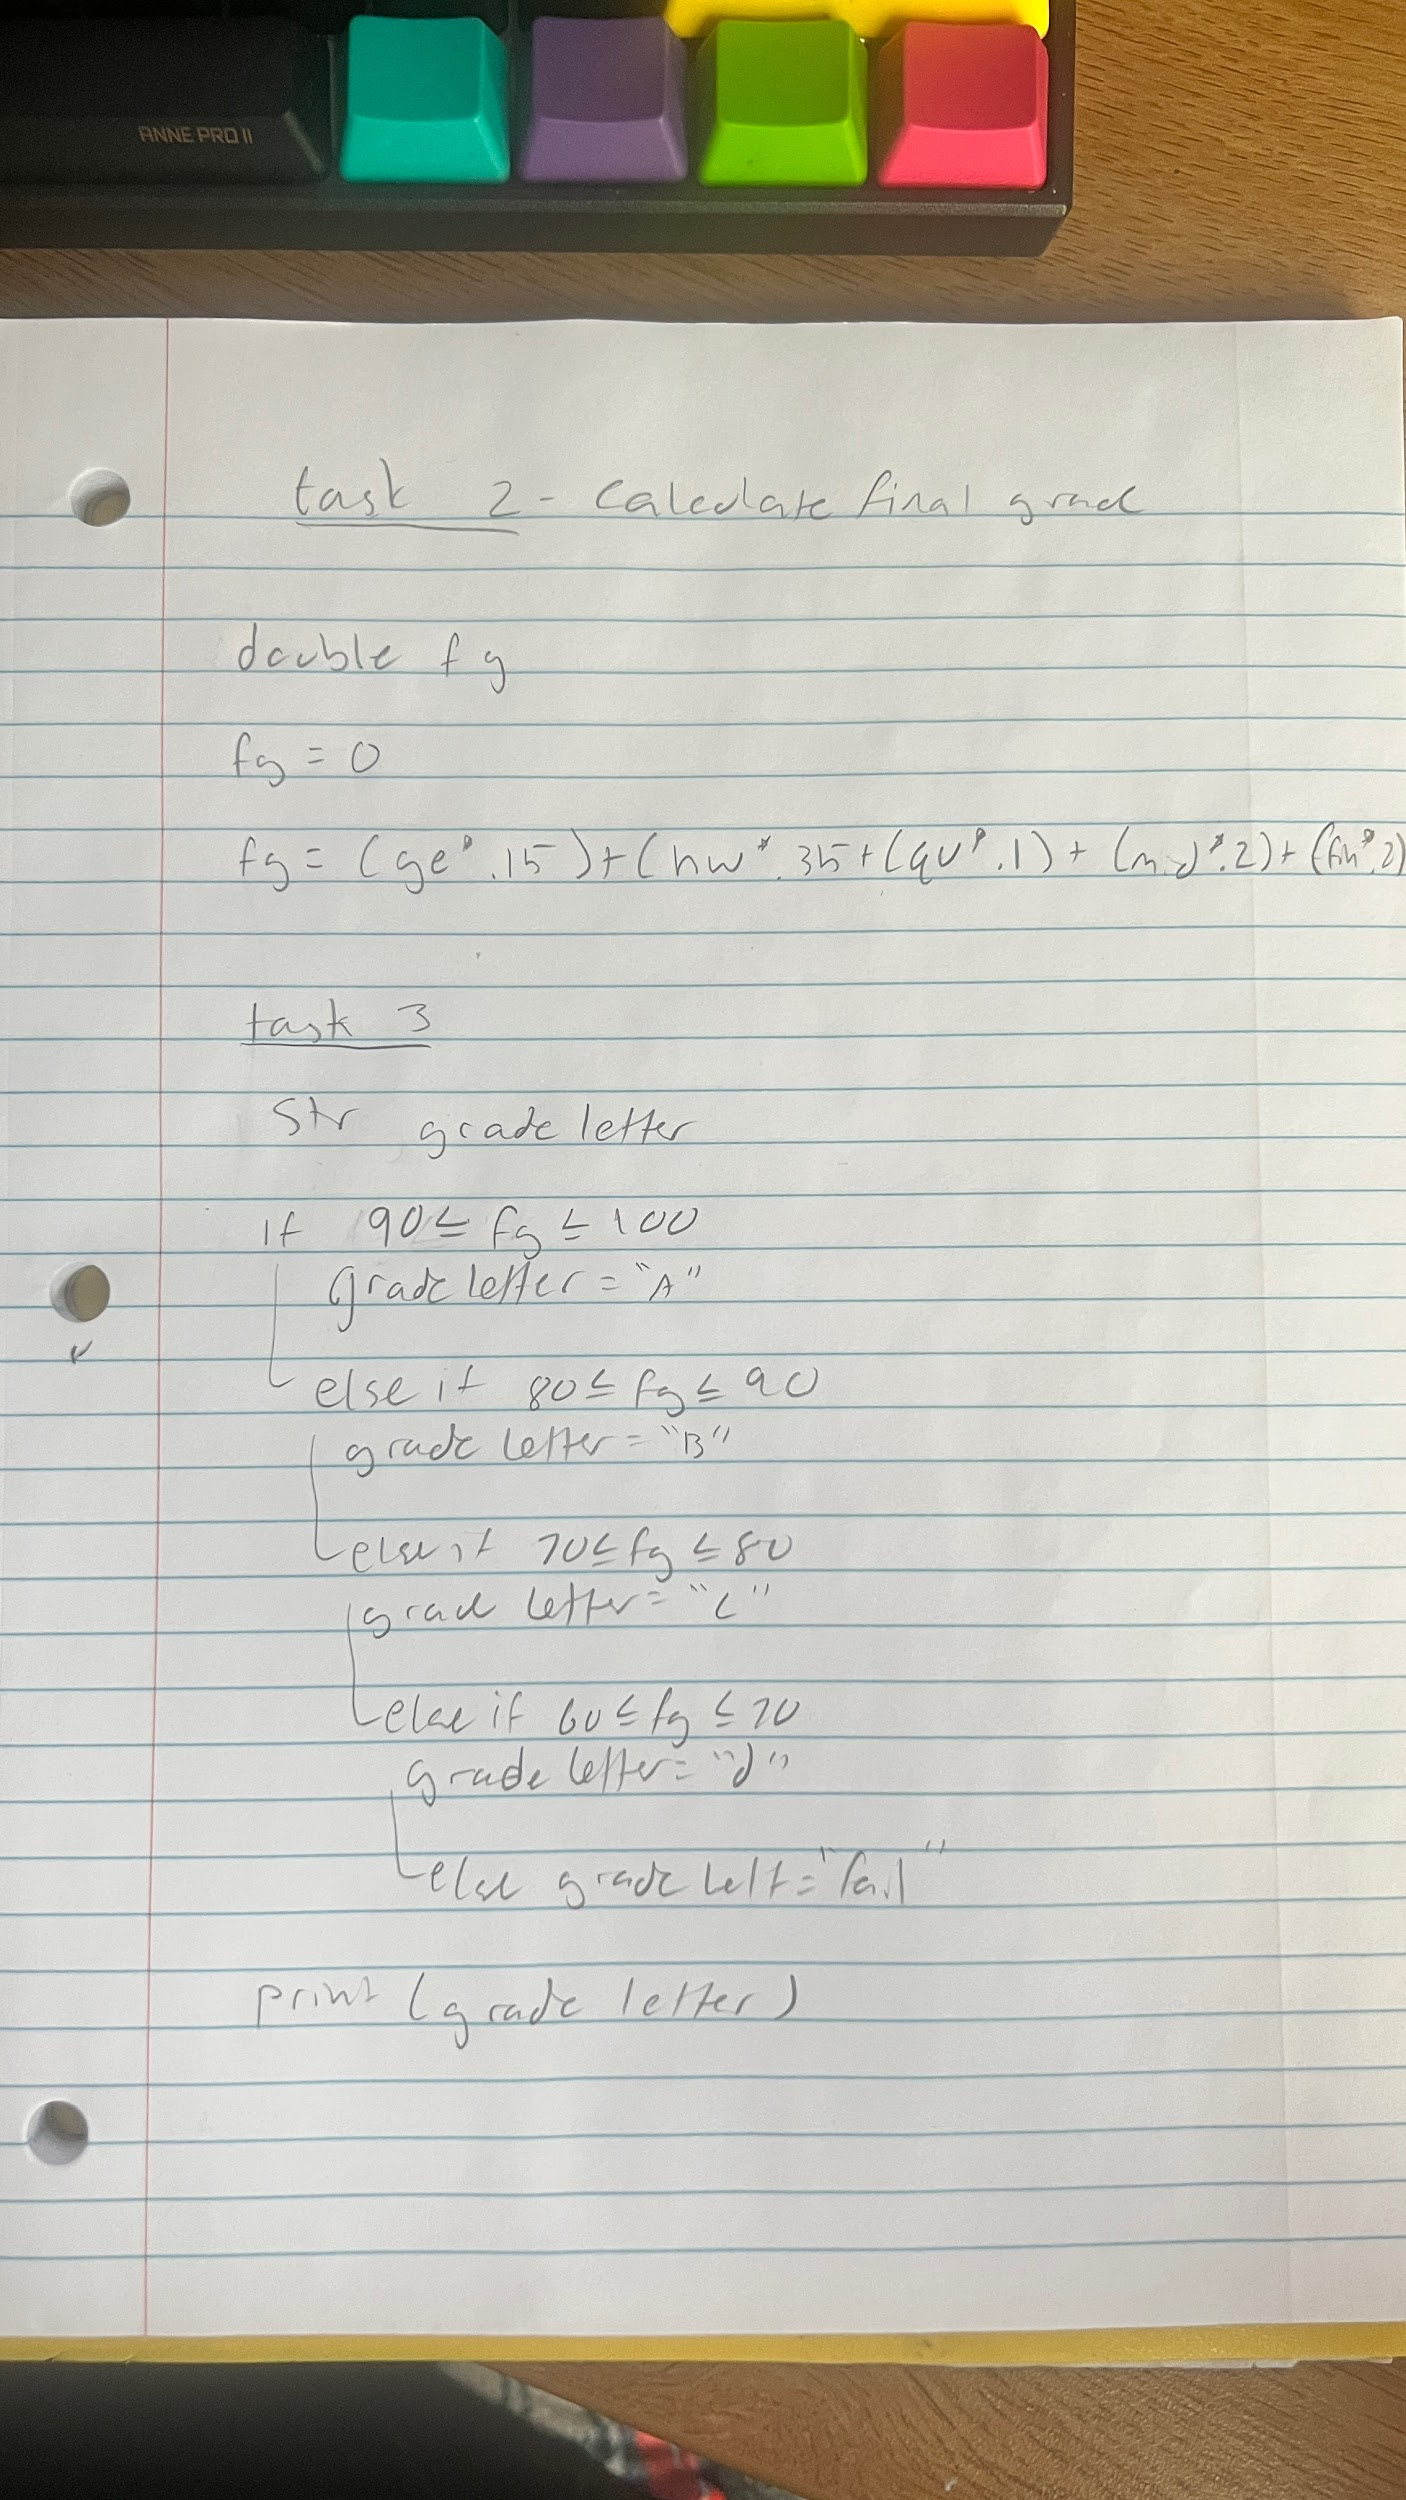 ANNE PRO II
task 2 - Calculate final grad
double fg
fg = 0
fg = (ge * .15) + (hw * .35 + (qu * .1) + (mid * .2) + (fin * .2)
task 3
Str grade letter
if 90 ≤ fg ≤ 100
grade letter = "A"
else if 80 ≤ fg ≤ 90
grade letter = "B"
else if 70 ≤ fg ≤ 80
grade letter = "C"
else if 60 ≤ fg ≤ 70
grade letter = "d"
else grade lett = "fail"
print (grade letter)